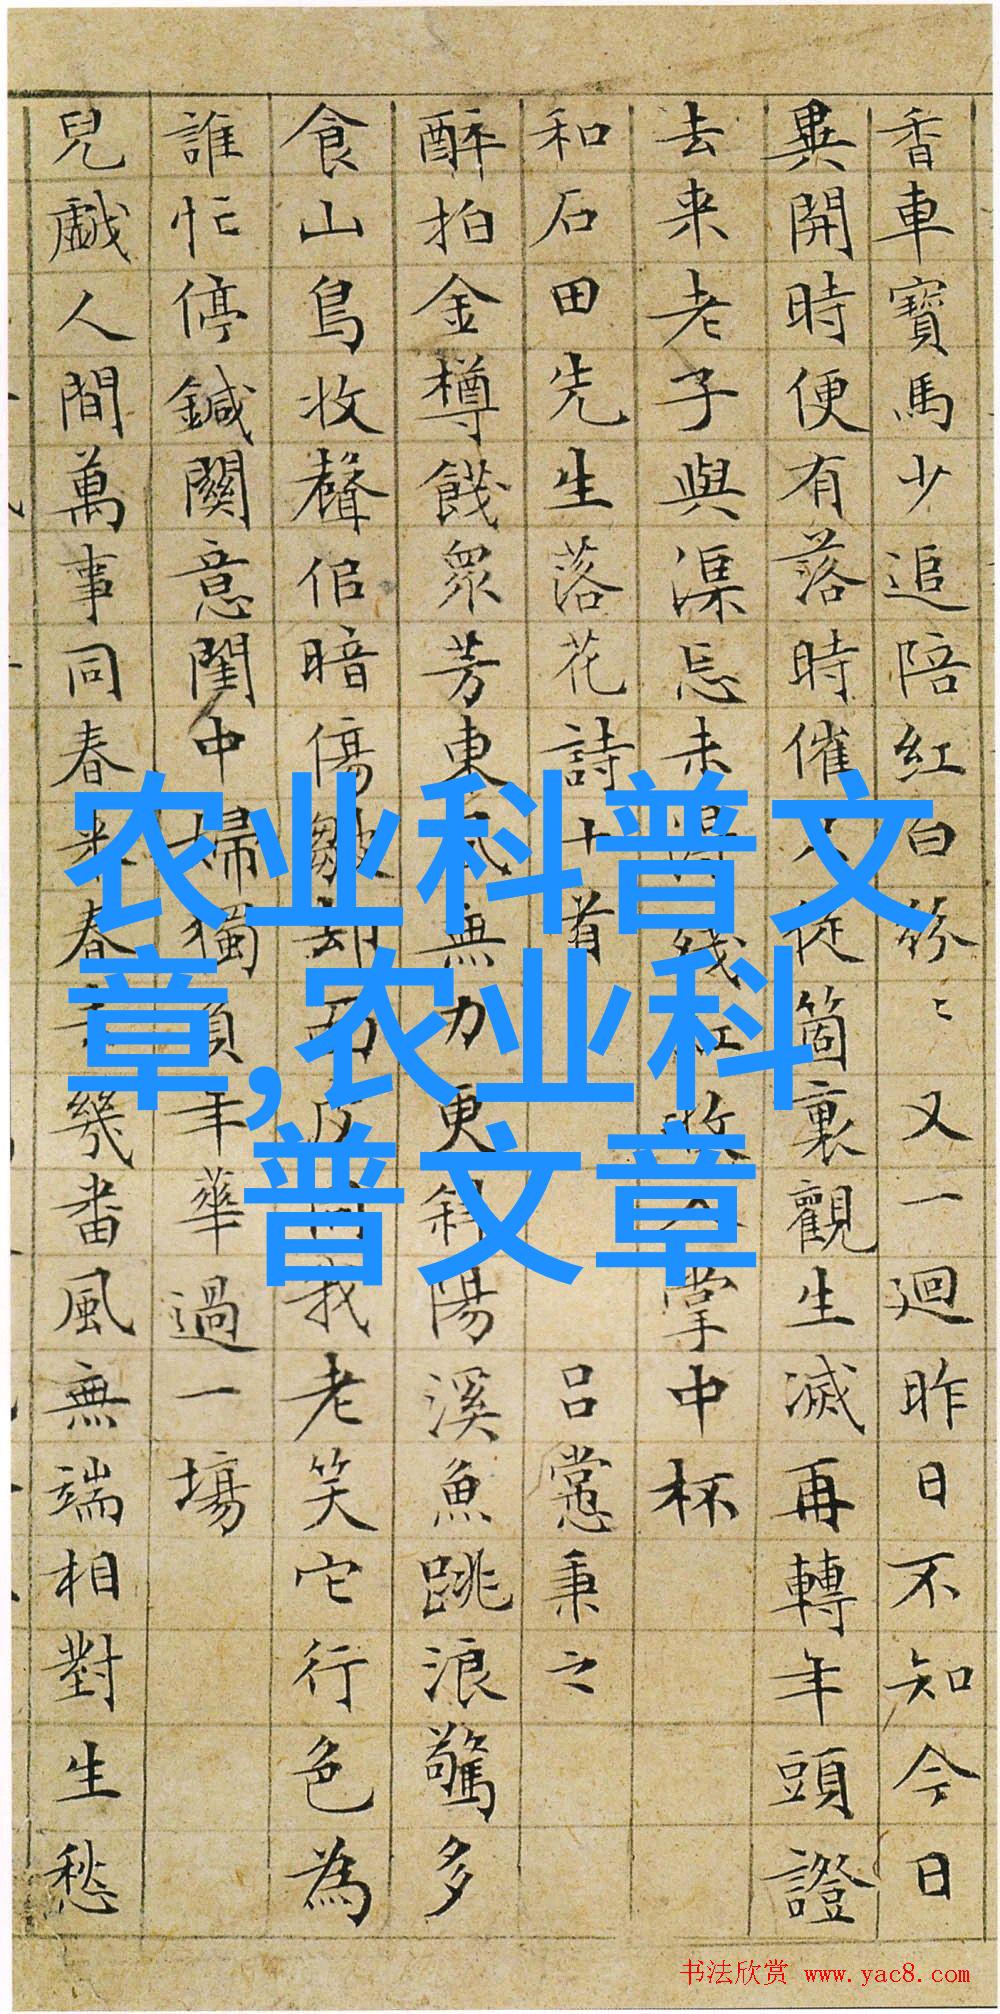 香車寶馬少追陪紅白紛〻又一迴昨日不知今日
異開時便有落時催從箇裏觀生滅再轉年頭證
去来老子與渠忘未殘紅收掌中杯
和石田先生落花詩十首 吕㦂秉之
醉拍金樽餞衆芳東風無力更斜陽溪魚跳浪驚多
食山鳥收聲倍暗傷皺却面皮我老笑它行色為
誰忙停鍼關意閨中婦獨負年華過一場
兒戲人間萬事同春来春去幾番風無端相對生愁
农业科普文
章,农业科
普文章
书法欣赏 www.yac8.com